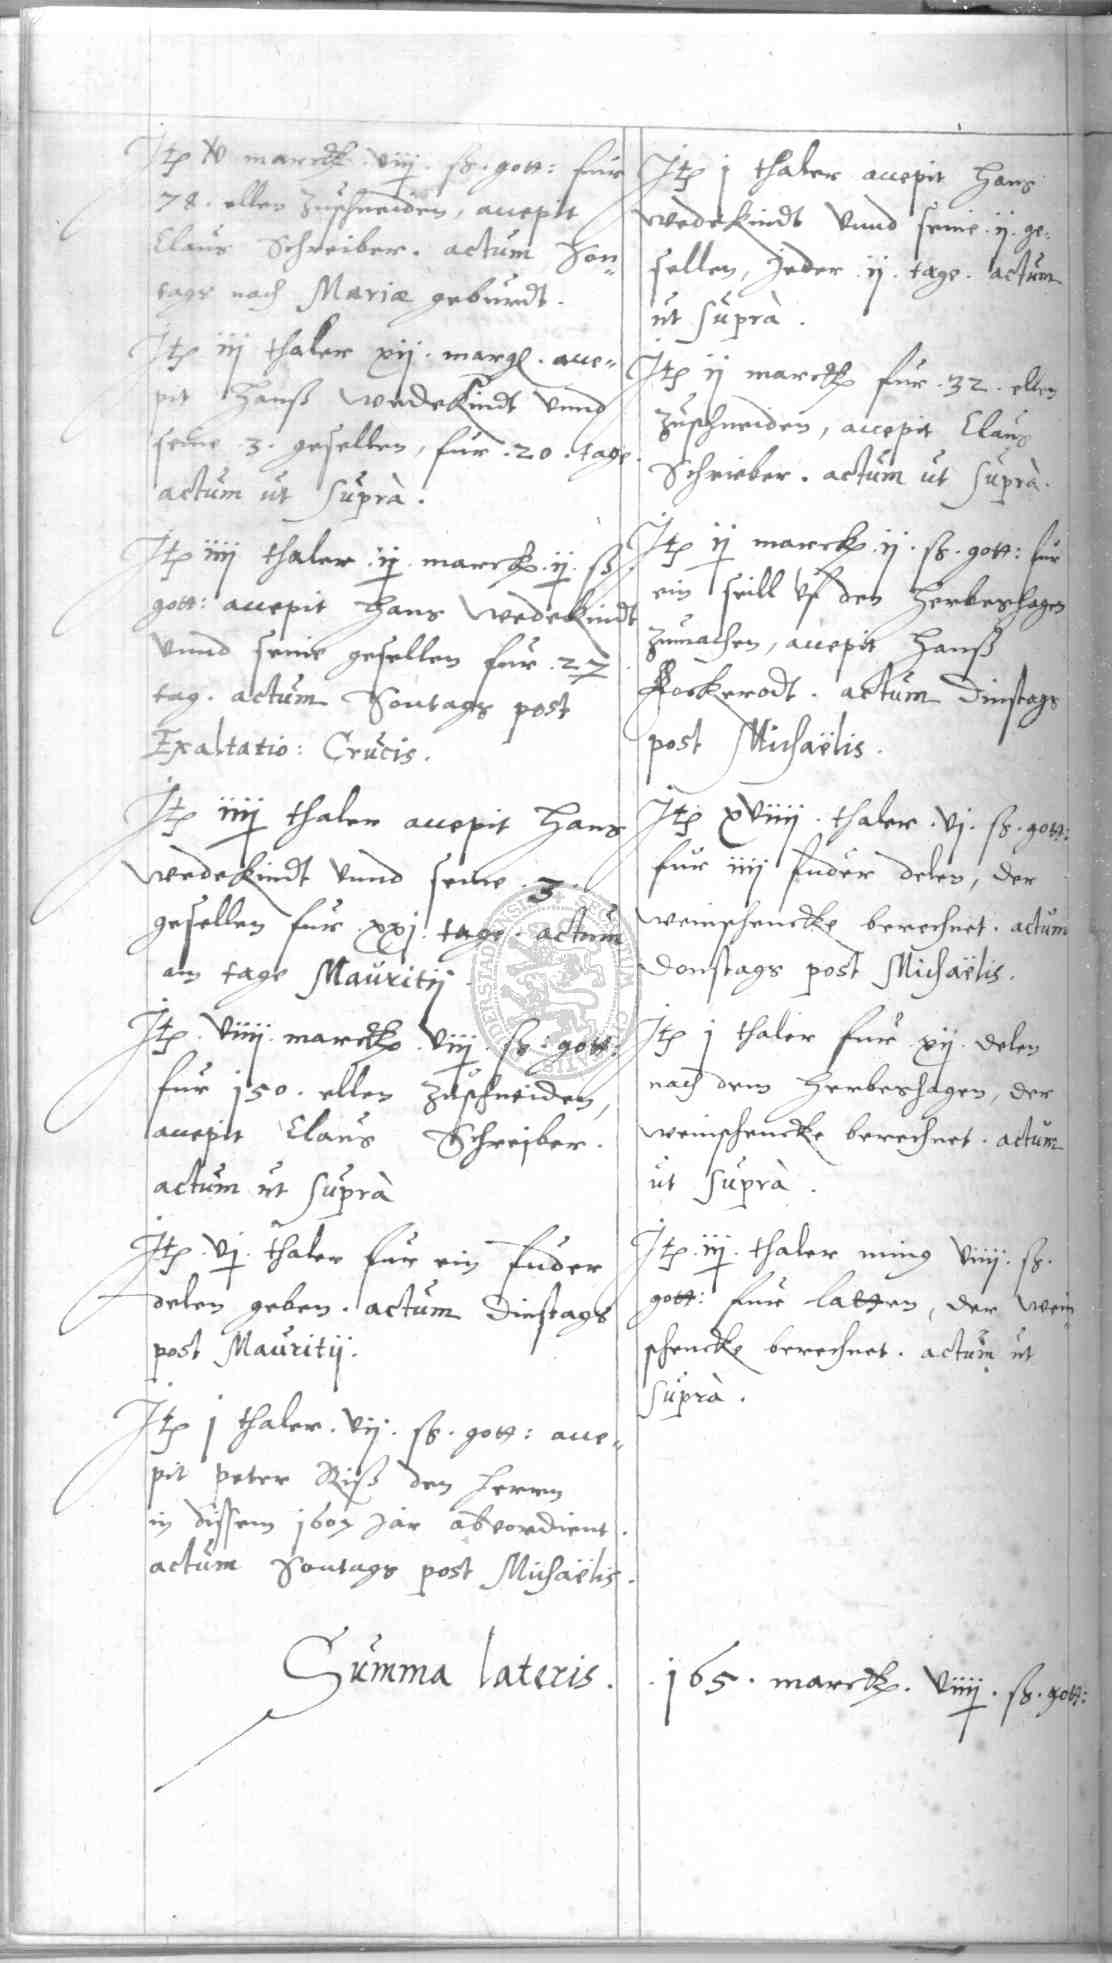 Itp v marck. viij. ß. gott: fur
78. ellen zuschneiden, accepit
Claus Schreiber. actum Son-
tags nach Mariæ geburdt.
Itp iij thaler xij. marg. acce-
pit Hanß Wedekindt vnnd
seine 3. gesellen, fur .20. tage.
actum ut suprà.
Itp iiij thaler .ij. marck .ij. ß.
gott: accepit Hans Wedekindt
vnnd seine gesellen fur .27.
tag. actum Sontags post
Exaltatio: Crucis.
Itp iiij thaler accepit Hans
Wedekindt vnnd seine .3.
gesellen fur .xxj. tage. actum
am tage Mauritij.
Itp. viiij. marck. viij. ß. gott:
fur 150. ellen zuschneiden,
accepit Claus Schreiber.
actum ut suprà
Itp. vj. thaler fur ein fuder
delen geben. actum Dinstags
post Mauritij.
Itp j thaler. vij. ß. gott: acce-
pit Peter Riß den herrn
in dissem 1607 Jar abverdient.
actum Sontags post Michaëlis.
Itp j thaler accepit Hans
Wedekindt vnnd seine .ij. ge-
sellen, Jeder .ij. tage. actum
ut suprà.
Itp ij marck fur .32. ellen
zuschneiden, accepit Claus
Schrieber. actum ut suprà.
Itp ij marck .ij. ß. gott: fur
ein seill vf den Herbeshagen
zumachen, accepit Hanß
Kockerodt. actum Dinstags
post Michaëlis.
Itp xviiij. thaler. vj. ß. gott:
fur iiij fuder delen, der
weinschencke berechnet. actum
Donstags post Michaëlis.
Itp j thaler fur .xij. delen
nach dem Herbeshagen, der
weinschencke berechnet. actum
ut suprà.
Itp. iij. thaler ming viiij. ß.
gott: fur latten, der wein-
schencke berechnet. actum ut
suprà.
Summa lateris. .165. marck. viiij. ß. gott: